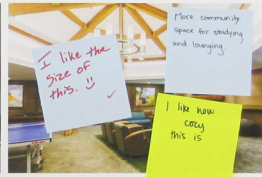 I like the
size of
this. :)
More community
space for studying
and lounging.
I like how
cozy
this is